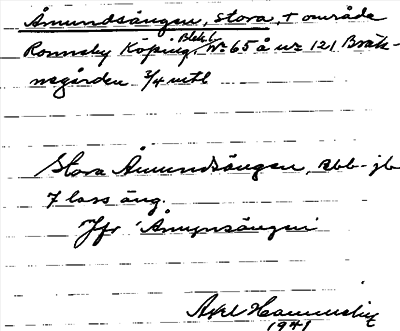 Åmundsängen, stora, + område
Ronneby Köping, Blek. l. Nr 65 å nr 121 Bräk-
negården 3/4 mtl
Stora Åmundsängen, Abb- jb
7 lass äng.
Jfr Åmynsängen
Axel
1941